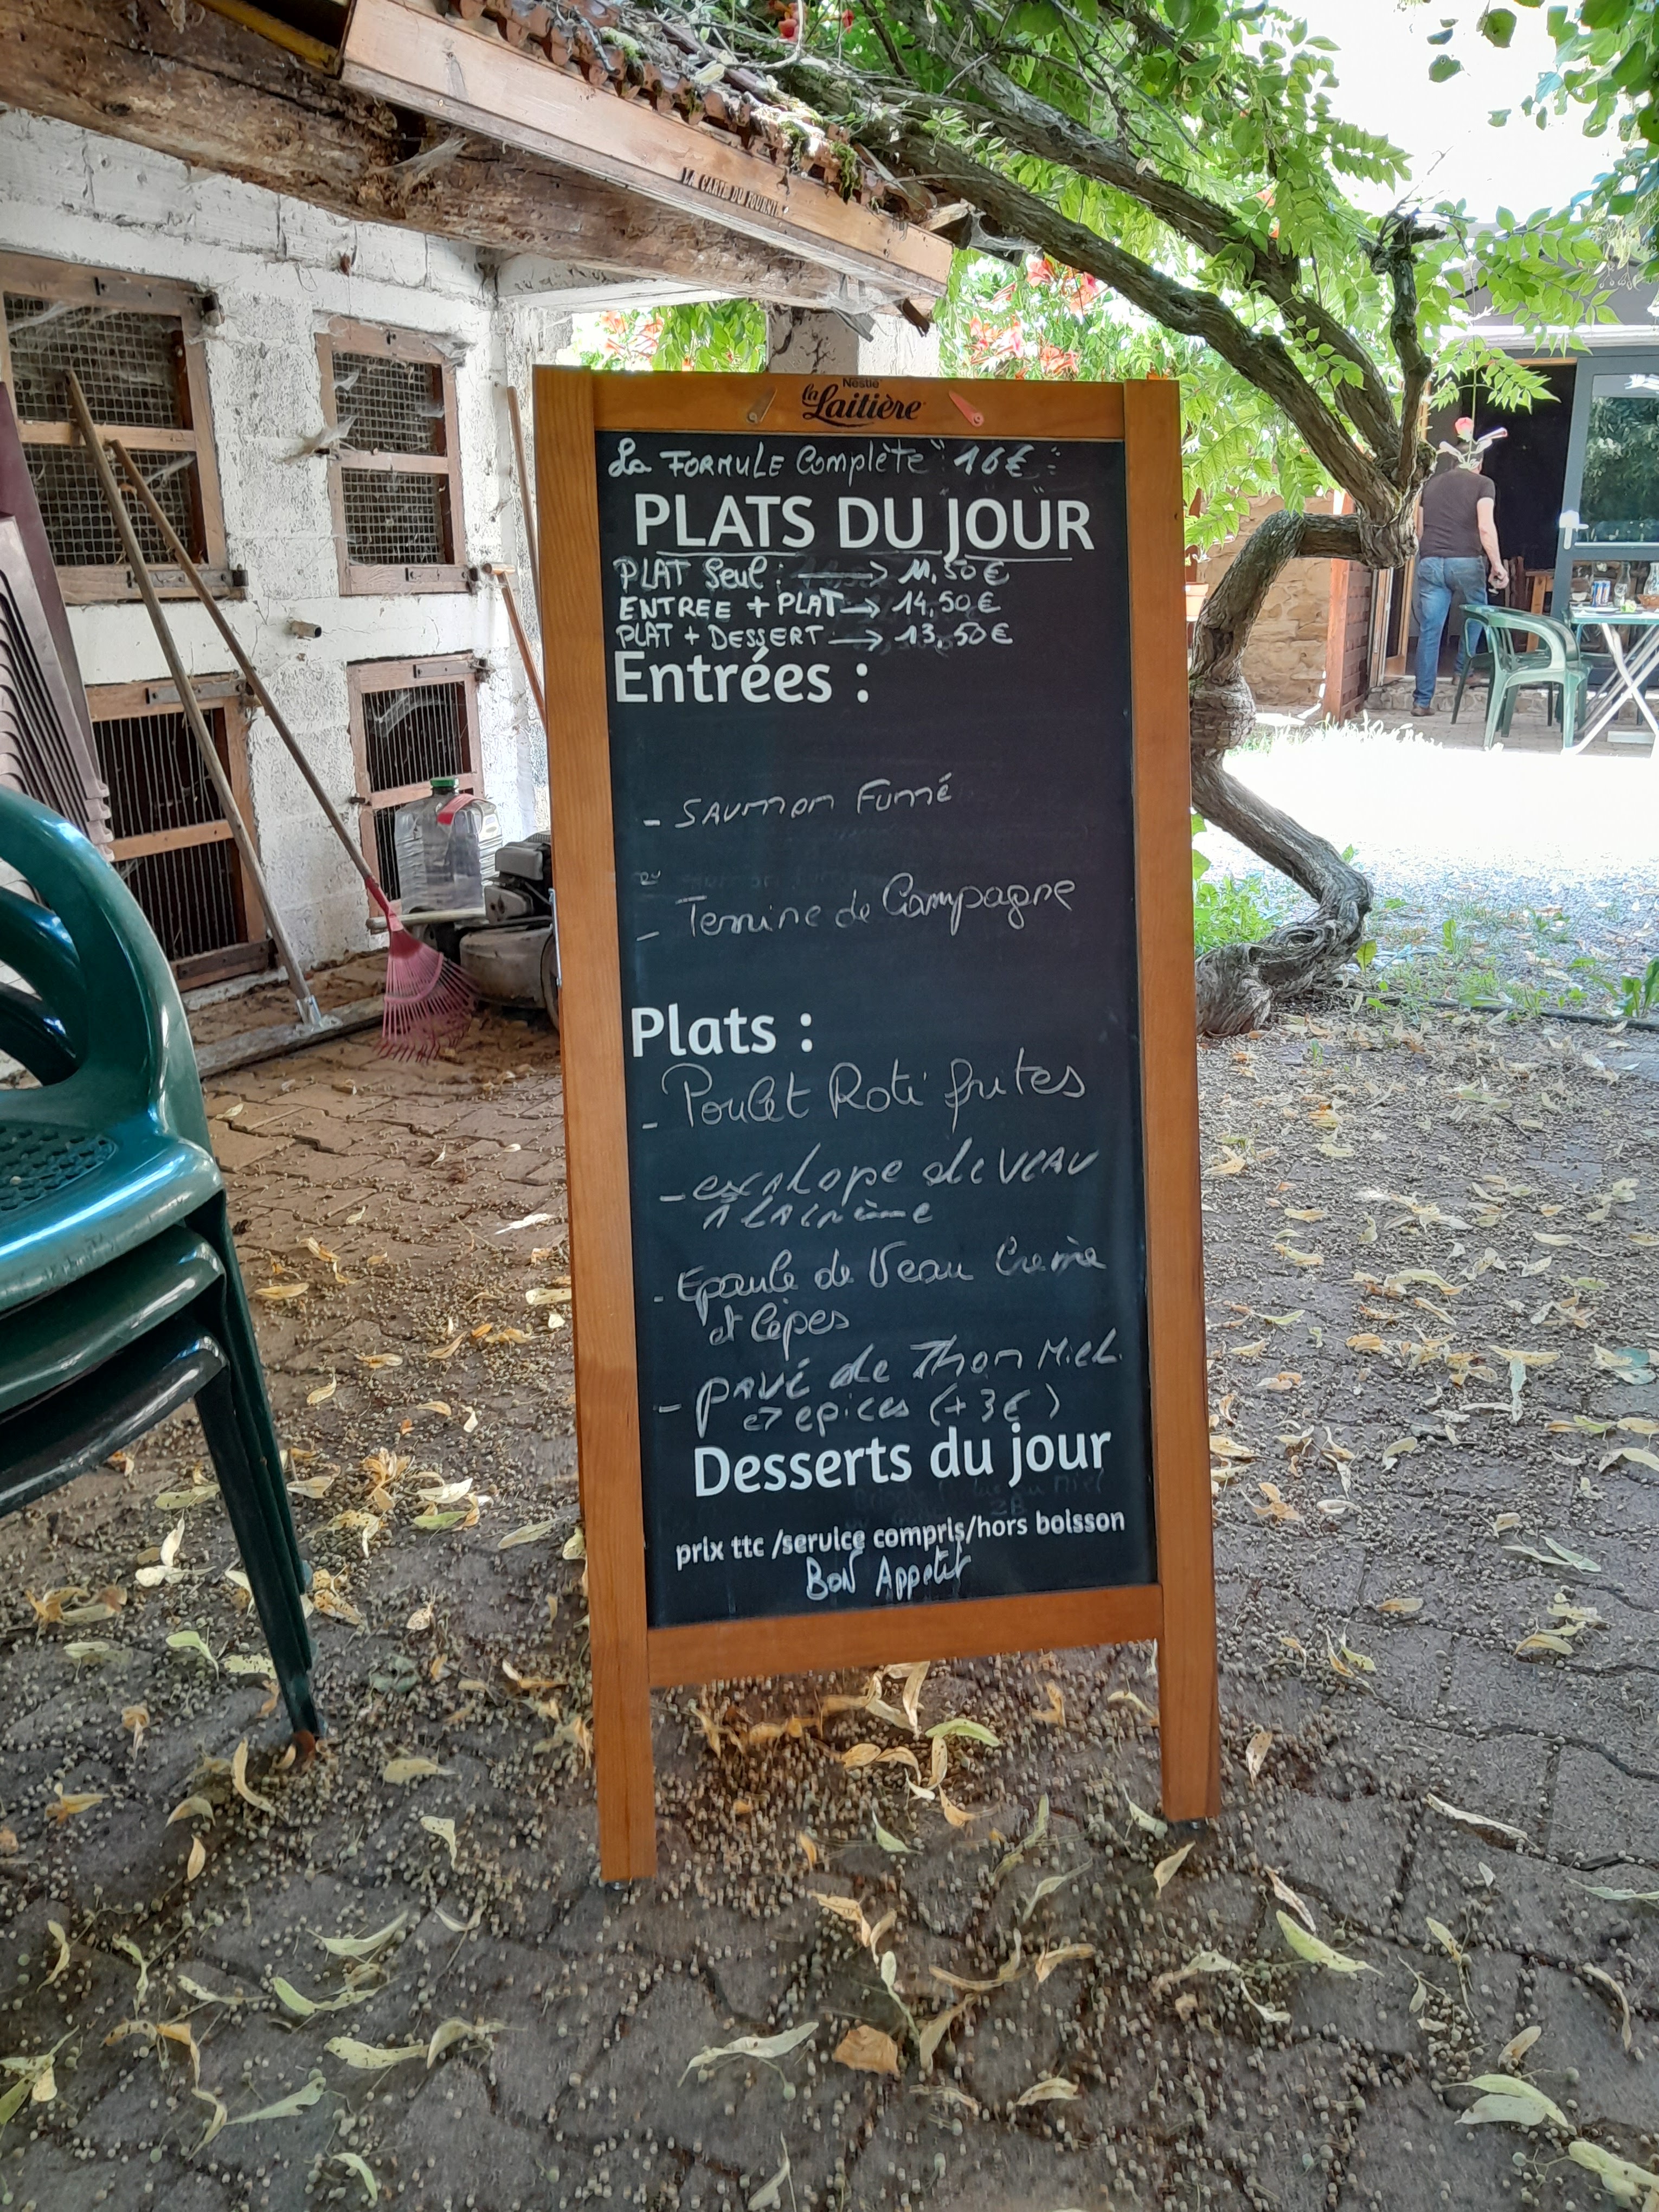 LA CARTE DU FOURNIL
Nestlé
la Laitière
La FORMULE Complète " 16€ "
PLATS DU JOUR
PLAT Seul : → 11,50 €
ENTREE + PLAT → 14,50 €
PLAT + DESSERT → 13,50 €
Entrées :
- SAUMON FUMÉ
ou
- Terrine de Campagne
Plats :
- Poulet Roti frites
- escalope de VEAU
A LA CRème
- Epaule de Veau Crème
et Cèpes
- PAVÉ de Thon Miel
ET epices (+3€)
Desserts du jour
prix ttc /service compris/hors boisson
BON Appetit